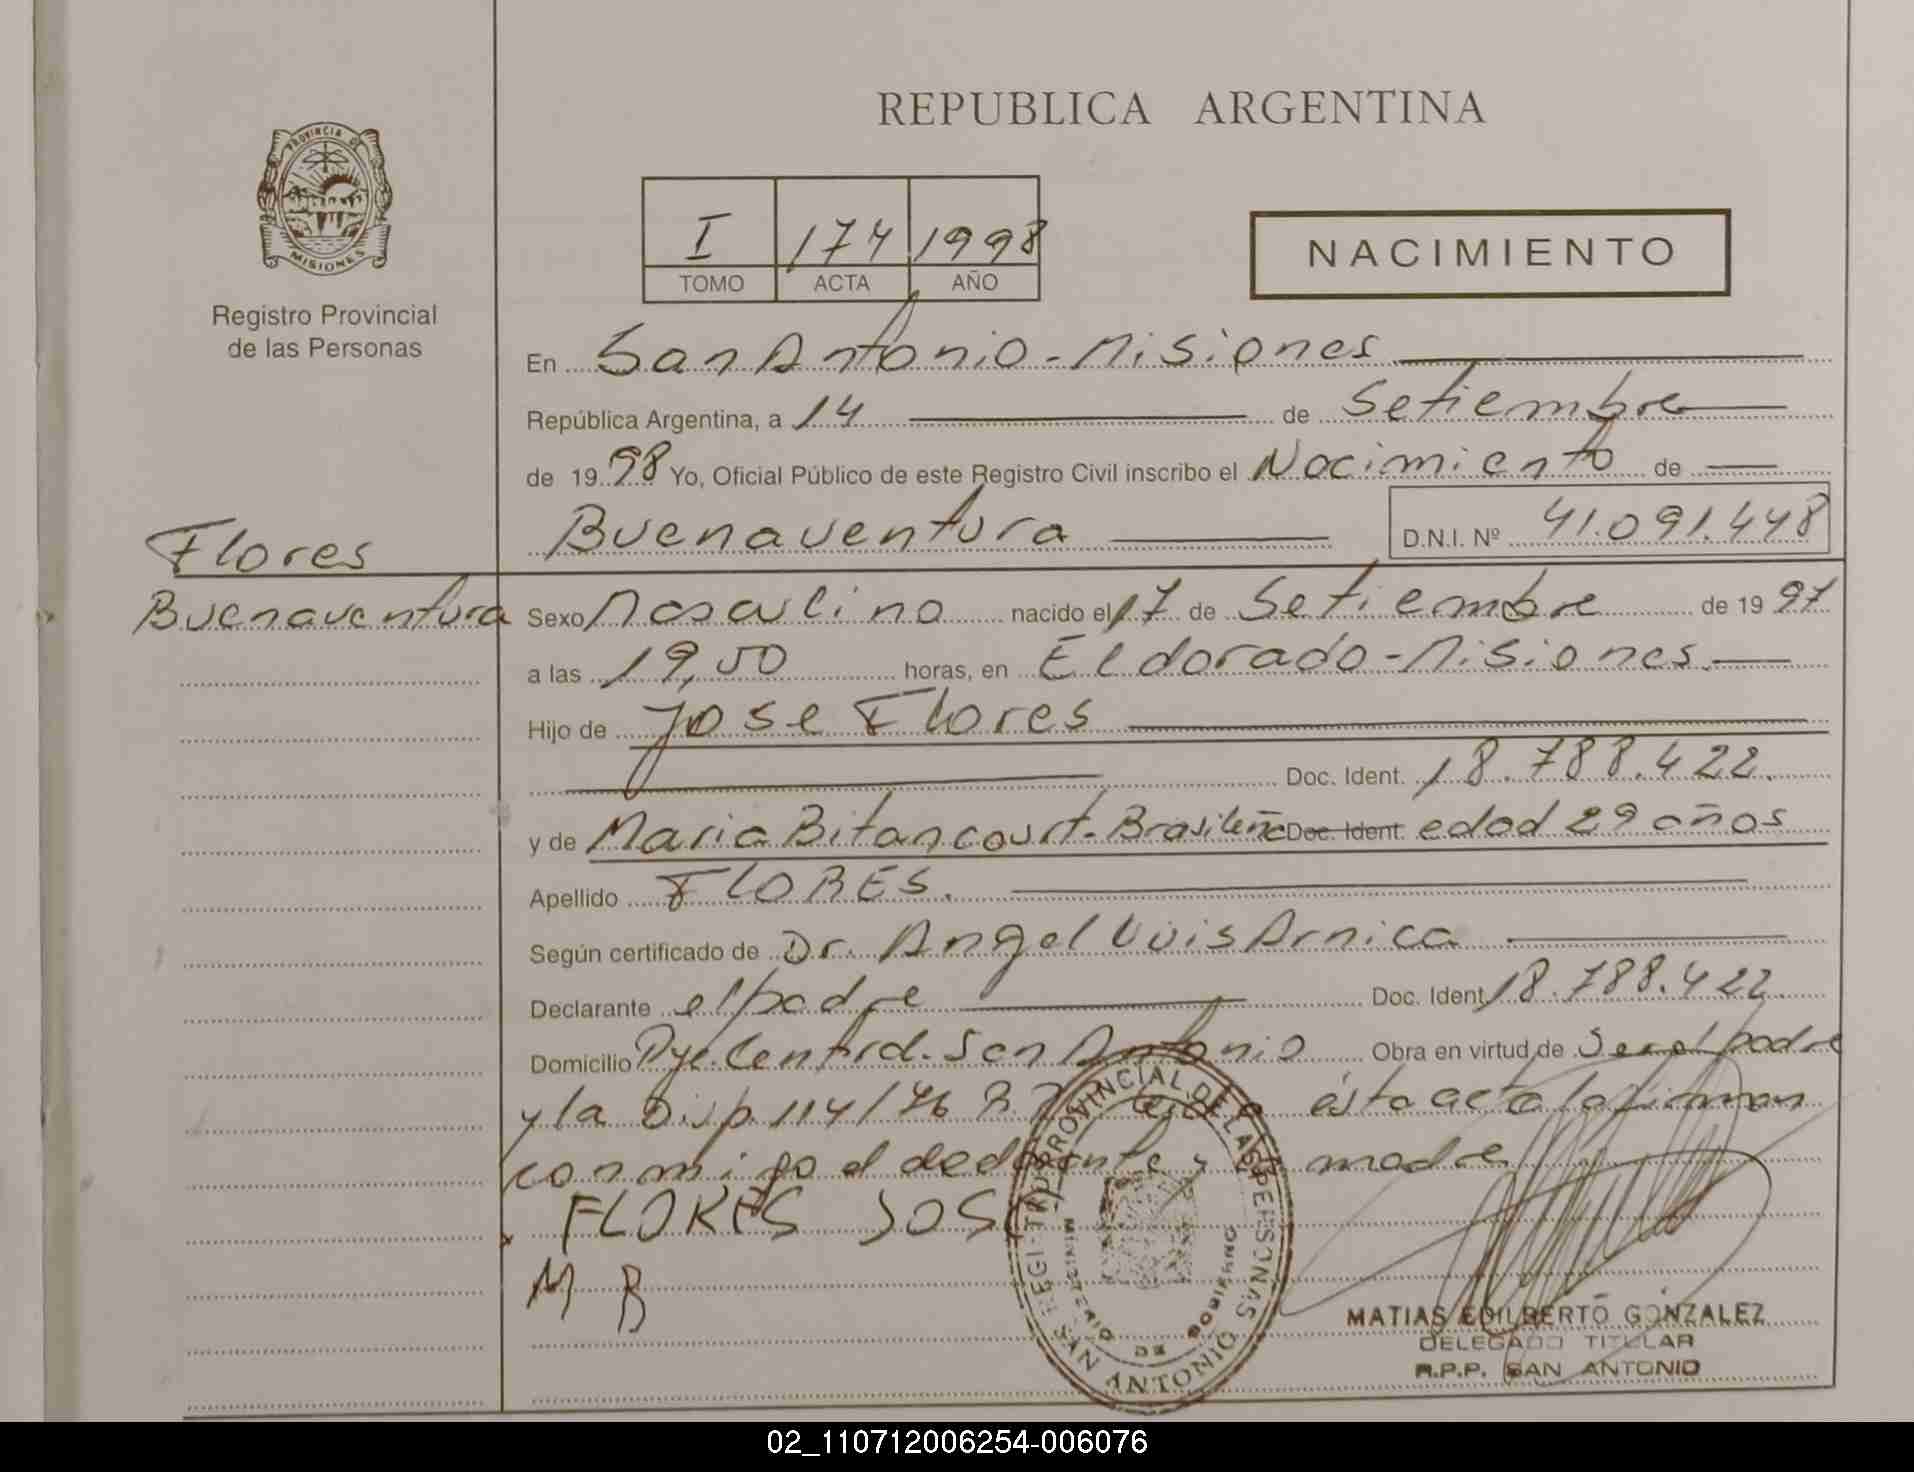 REPUBLICA ARGENTINA
PROVINCIA DE
MISIONES
Registro Provincial
de las Personas
I 174 1998
TOMO ACTA AÑO
NACIMIENTO
En San Antonio - Misiones
República Argentina, a 14 de Setiembre
de 1998 Yo, Oficial Público de este Registro Civil inscribo el Nacimiento de
Buenaventura D.N.I. Nº 41.091.448
Flores
Buenaventura
Sexo Masculino nacido el 17 de Setiembre de 1997
a las 19,50 horas, en Eldorado - Misiones
Hijo de Jose Flores
Doc. Ident. 18.788.422
y de Maria Bitancourt - Brasileña Doc. Ident. edad 29 años
Apellido FLORES.
Según certificado de Dr. Angel Luis Arnica
Declarante el padre Doc. Ident 18.788.422
Domicilio Pje. Central. San Antonio Obra en virtud de Ser el padre
y la Disp. 114/76 ésta acta la firman
conmigo el declarante y madre
FLORES JOSE
M B
REGISTRO PROVINCIAL DE LAS PERSONAS
MINISTERIO DE GOBIERNO
SAN ANTONIO
MATIAS EDILBERTO GONZALEZ
DELEGADO TITULAR
R.P.P. SAN ANTONIO
02_110712006254-006076